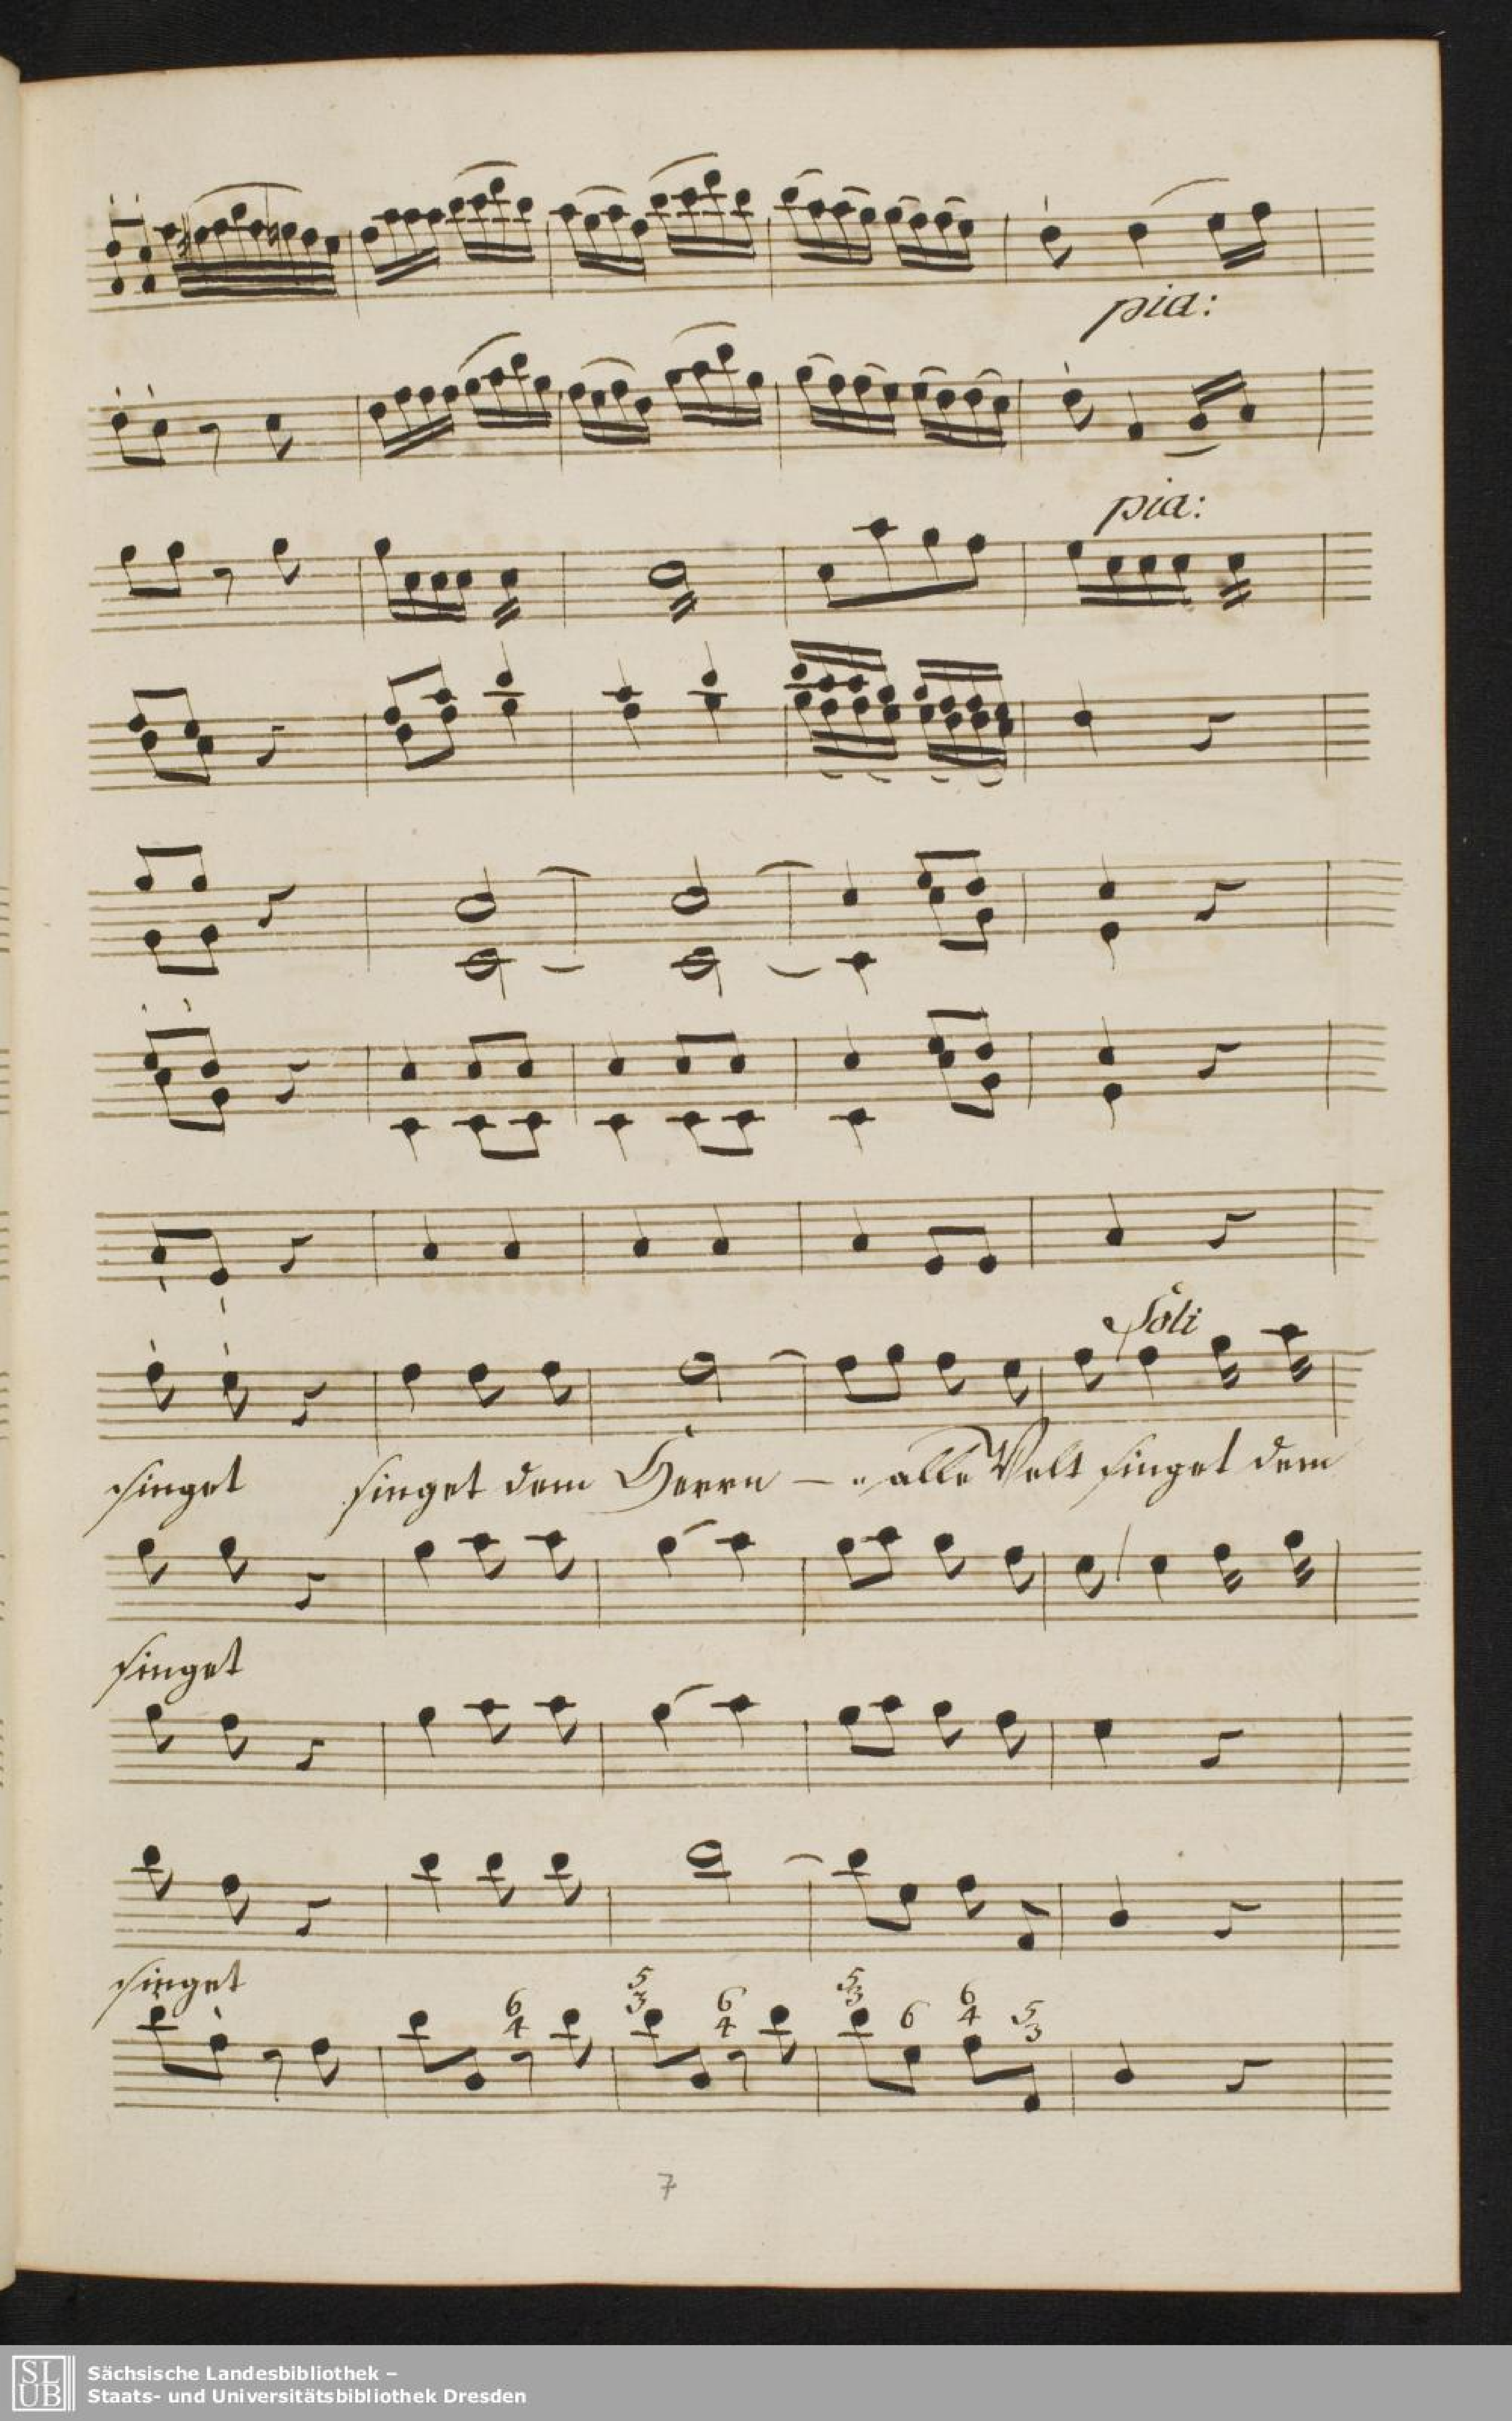 pia:
pia:
Soli
singet singet dem Herrn — alle Welt singet dem
singet
singet
6 5 6 5 6
4 3 4 3 6 4 5
3
7
SLUB
Sächsische Landesbibliothek –
Staats- und Universitätsbibliothek Dresden